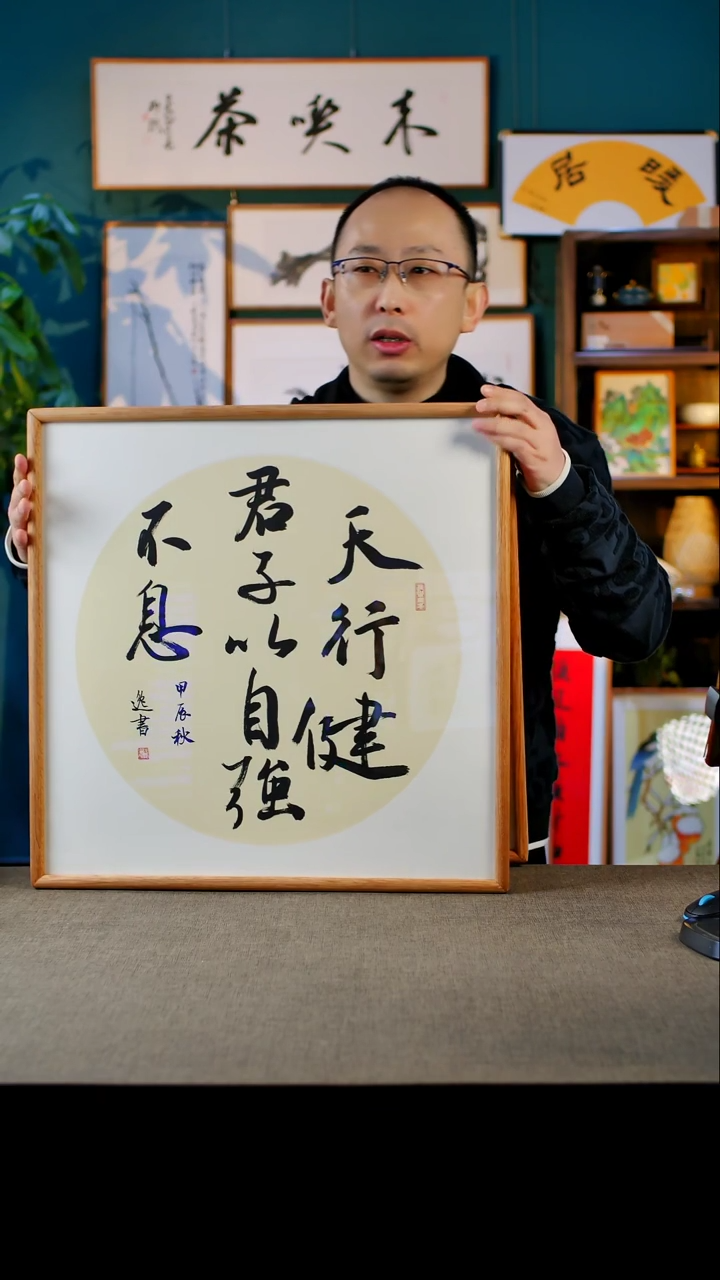 來喫茶
暖居
天行健
君子以自強
不息
甲辰秋
逸書